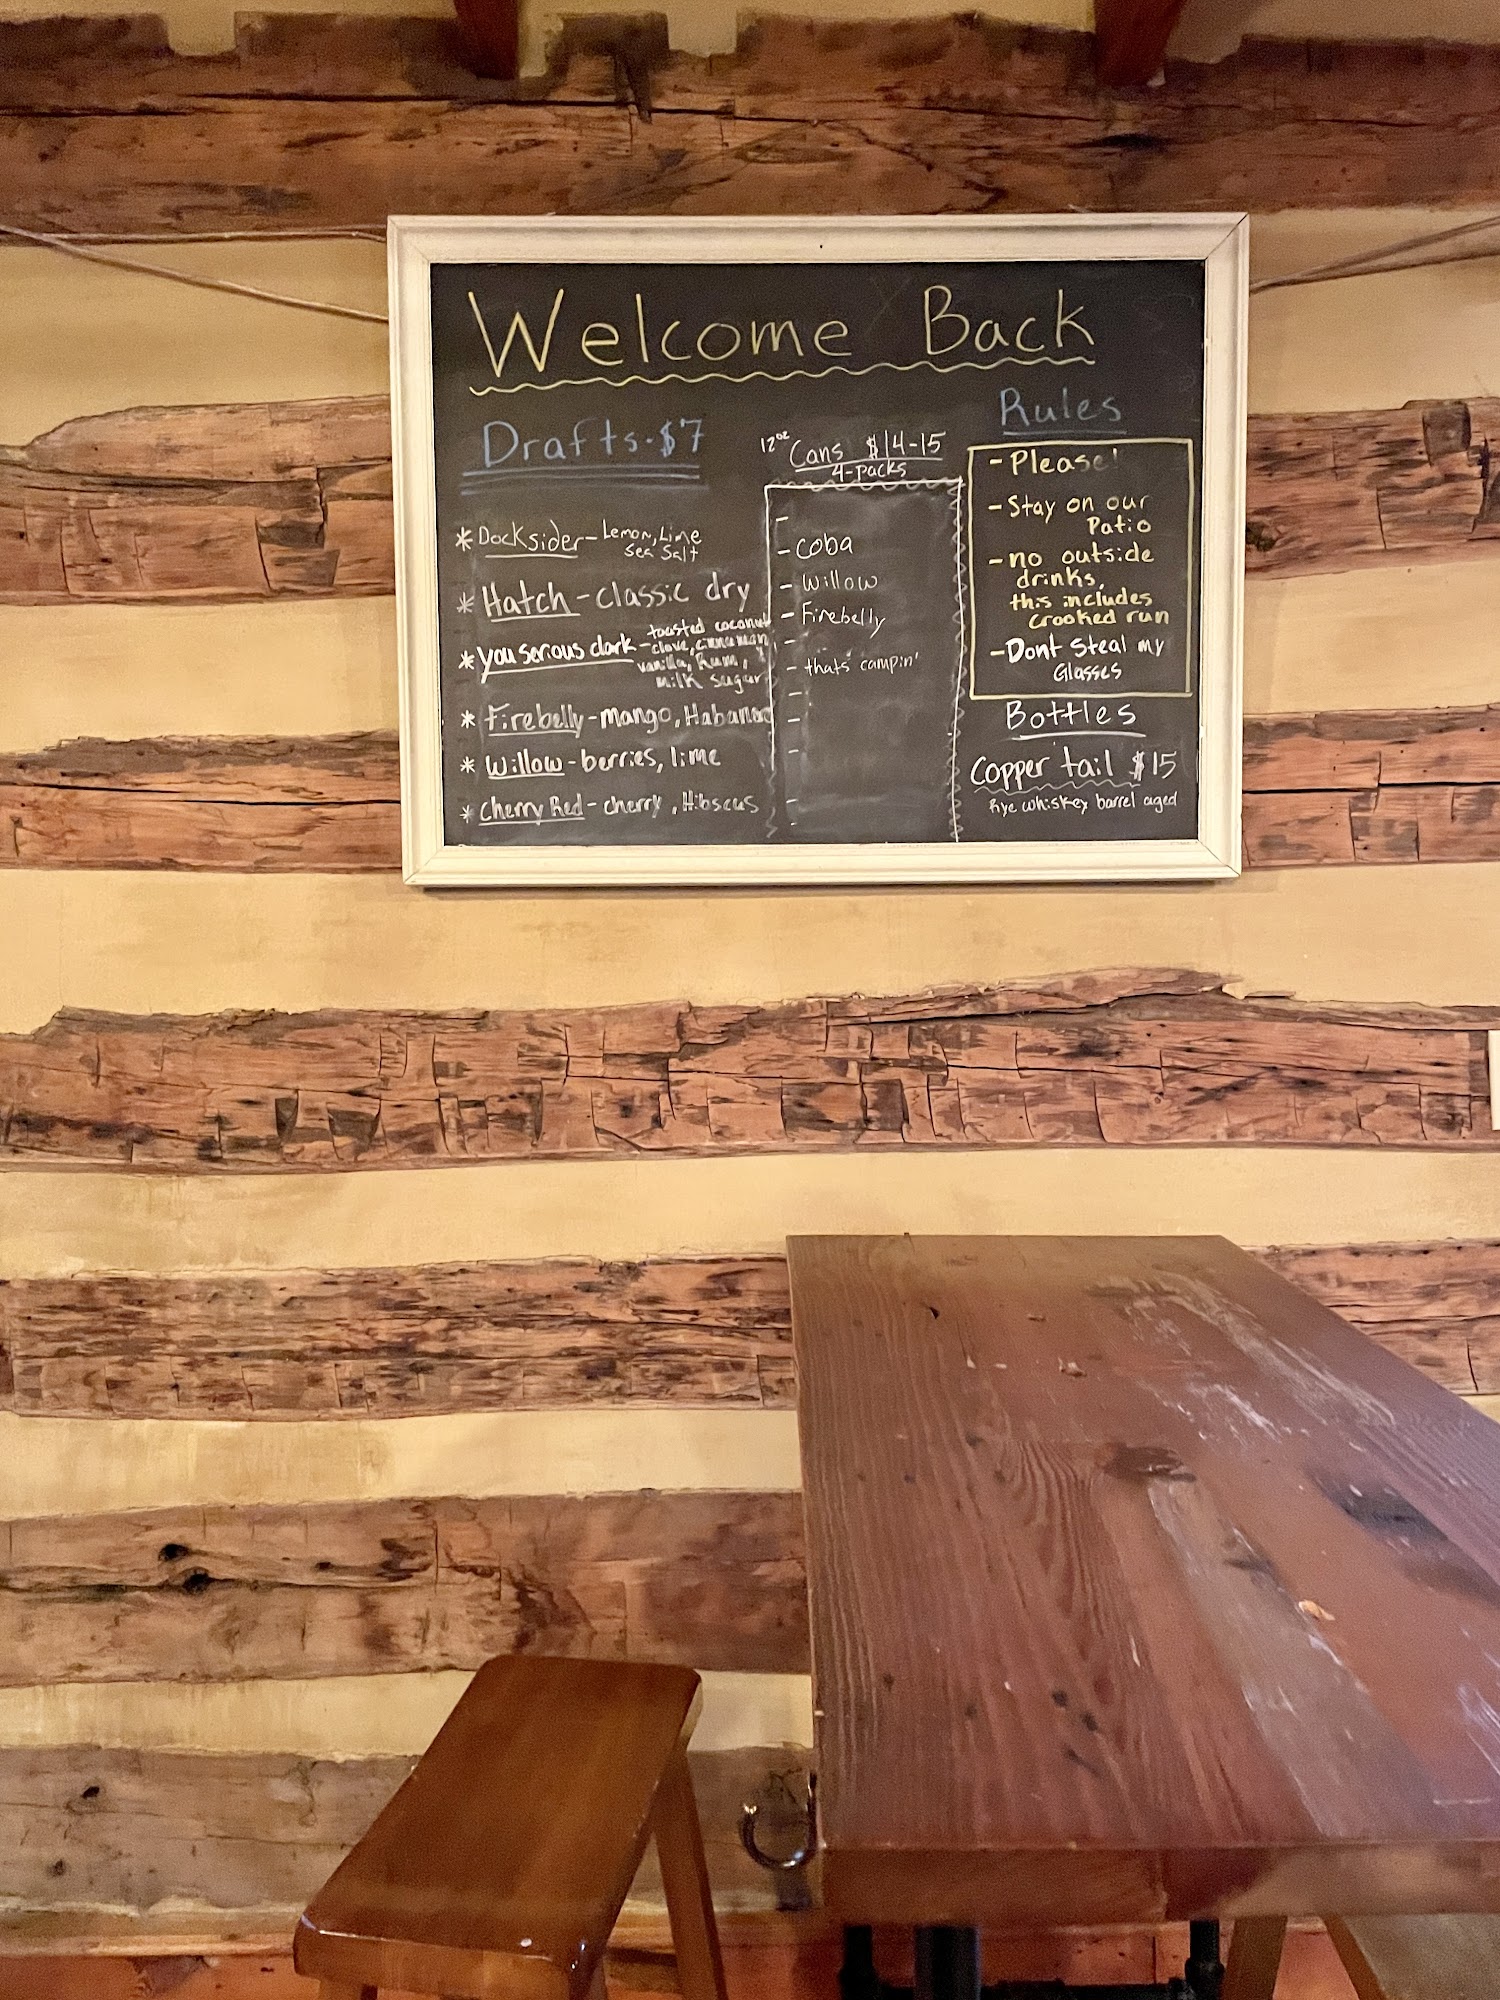 Welcome Back
Drafts-$7
* Docksider - Lemon, Lime
Sea Salt
* Hatch - classic dry
* you serious clark - toasted coconut
clove, cinnaman,
vanilla, Rum,
milk sugar
* Firebelly - mango, Habanao
* Willow - berries, lime
* Cherry Red - cherry, Hibscus
12oz Cans $14-15
4-packs
-
- Coba
- Willow
- Firebelly
-
- thats campin'
-
-
-
-
-
Rules
- Please!
- Stay on our
Patio
- no outside
drinks,
this includes
crooked run
- Dont Steal my
Glasses
Bottles
Copper tail $15
Rye whiskey barrel aged